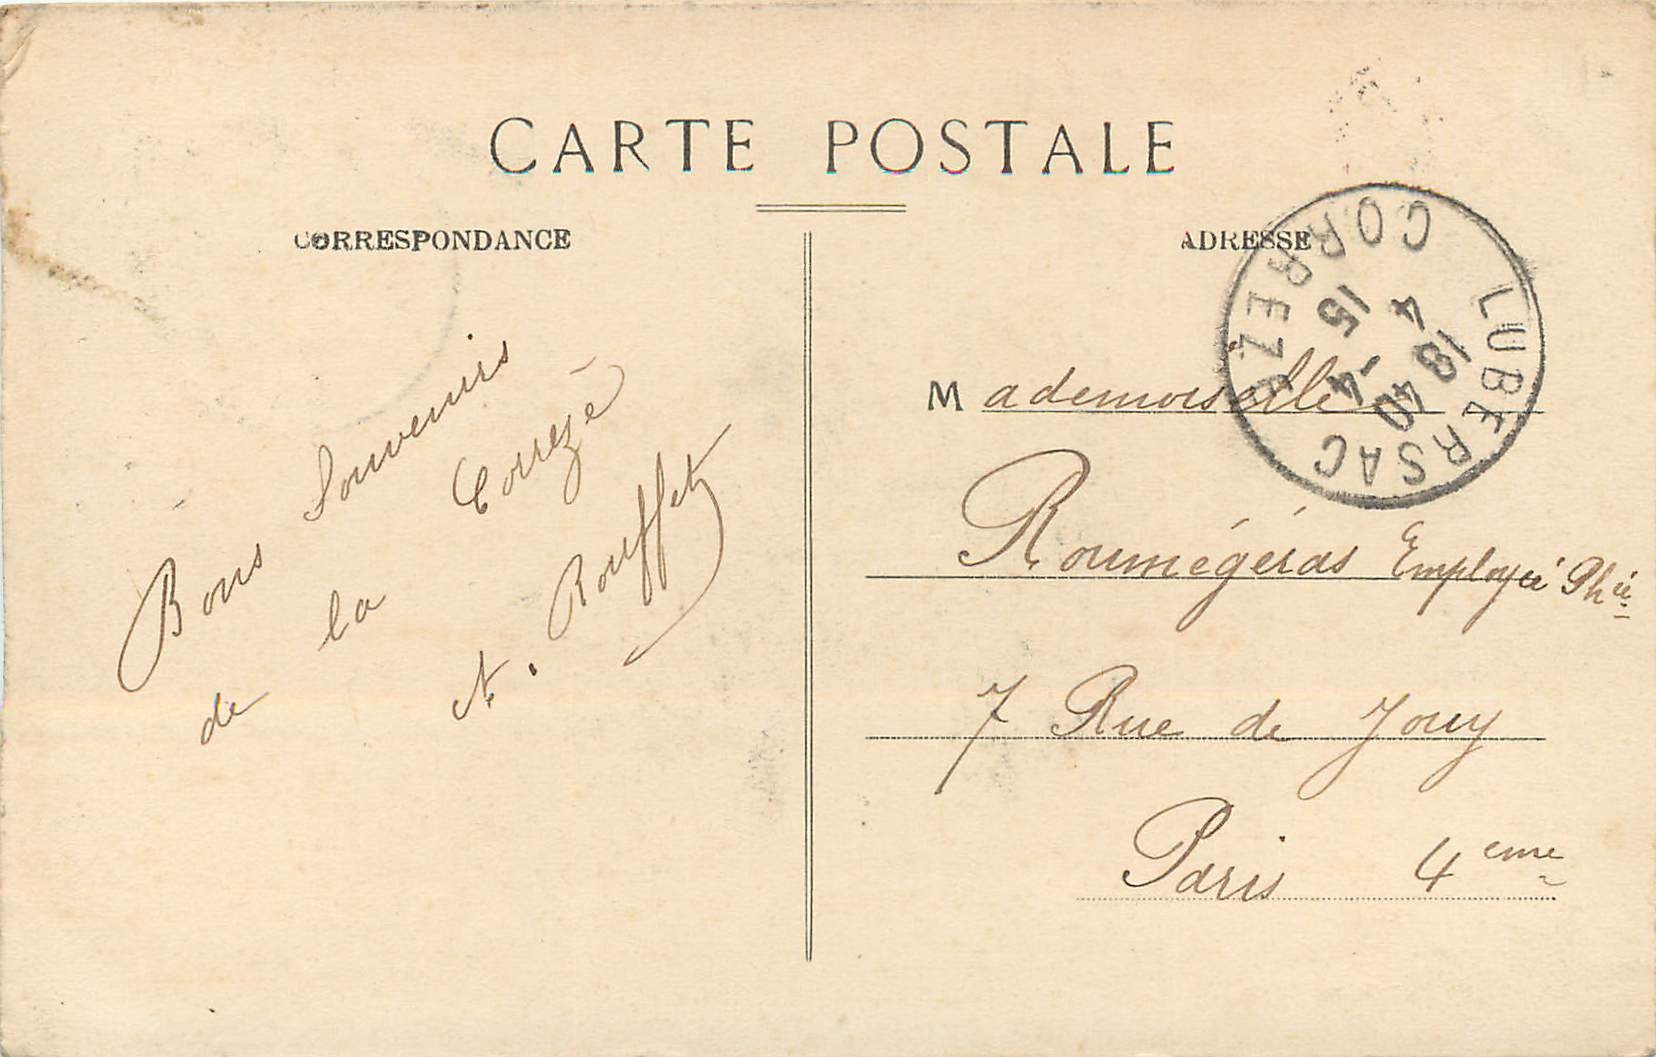 CARTE POSTALE
CORRESPONDANCE
ADRESSE
Bons Souvenirs
de la Corrèze
A. Rouffet
LUBERSAC
CORREZE
18 40
4 -4
15
Mademoiselle
Roumégéras Employée Phie
7 Rue de Jouy
Paris 4eme